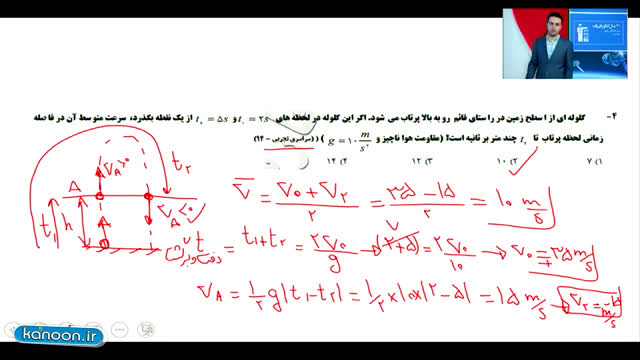 ۴- گلوله ای از سطح زمین در راستای قائم رو به بالا پرتاب می شود. اگر این گلوله در لحظه های t₁ = ۲s و t₂ = ۵s از یک نقطه بگذرد، سرعت متوسط آن در فاصله
زمانی لحظه پرتاب تا t₂ چند متر بر ثانیه است؟ (مقاومت هوا ناچیز و g = ۱۰ m/s²) (سراسری تجربی - ۹۴)
۱) ۷ ۲) ۱۰ ۳) ۱۲ ۴) ۱۴
A V_A>0 t₂
t₁ h A V_A<0
V̄ = (V₀ + V₂)/۲ = (۲۵ - ۱۵)/۲ = ۱۰ m/s
t = t₁ + t₂ = ۲V₀/g → (۲ + ۵) = ۲V₀/۱۰ → V₀ = +۳۵ m/s
V_A = ۱/۲ g|t₁ - t₂| = ۱/۲ × ۱۰ × |۲ - ۵| = ۱۵ m/s → V₂ = -۱۵ m/s
kanoon.ir